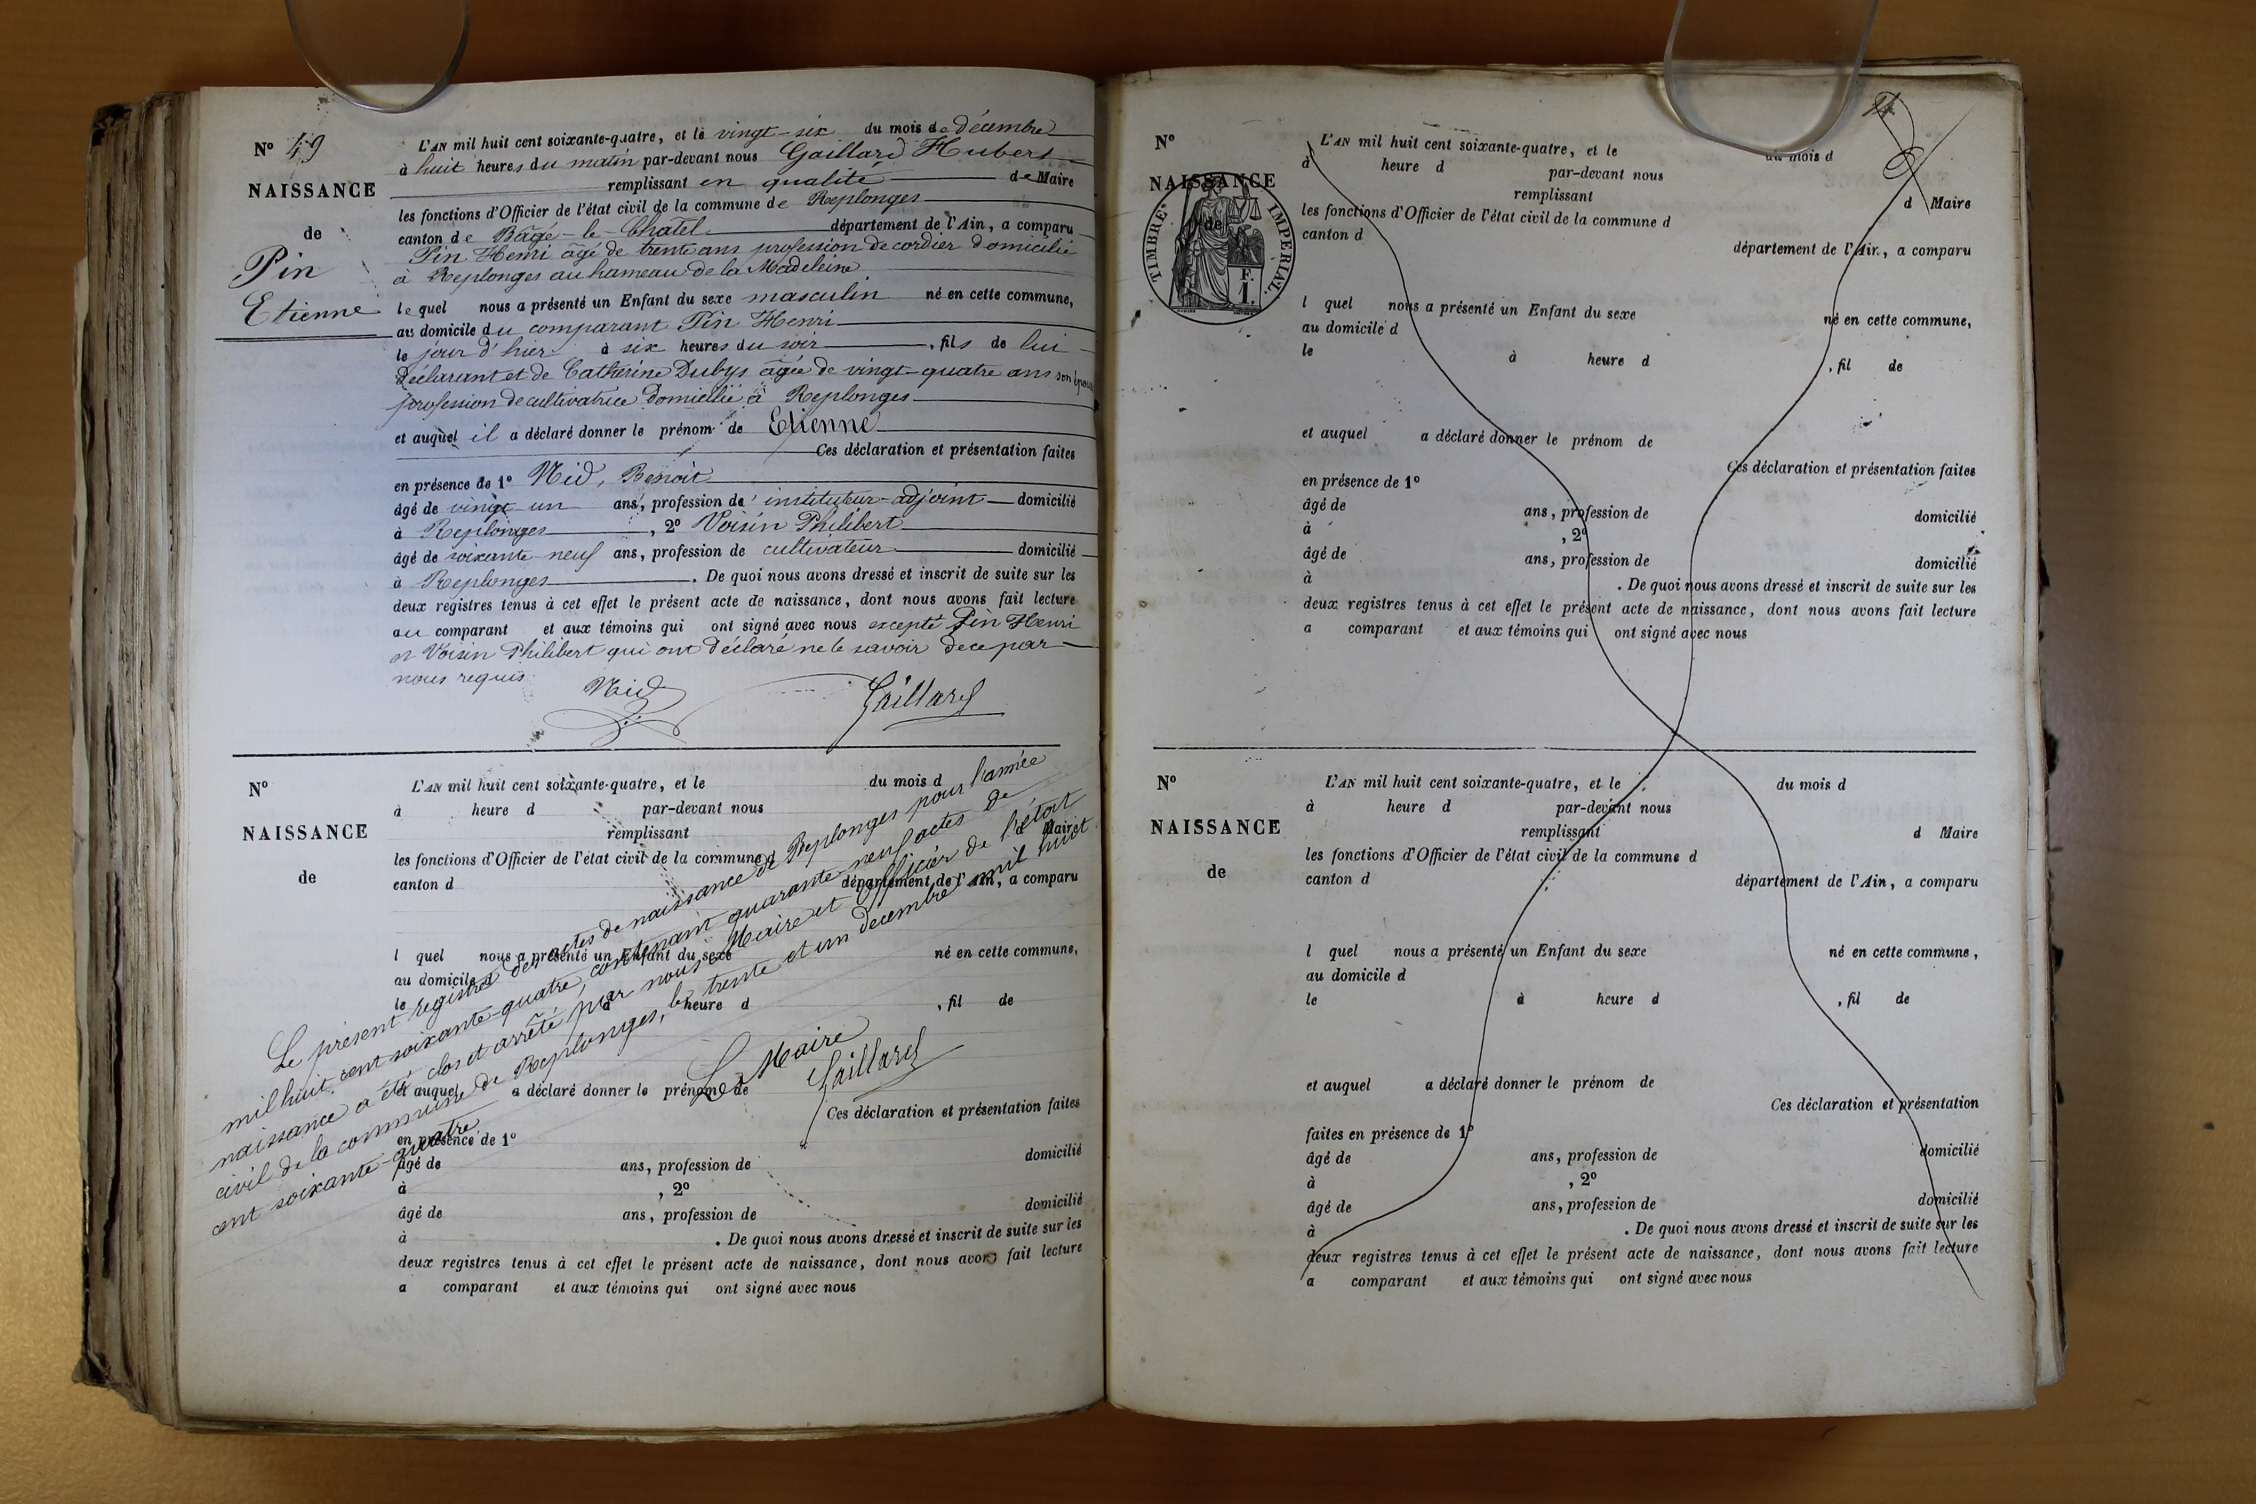 N° 49
NAISSANCE
de
Pin
Etienne
L'AN mil huit cent soixante-quatre, et le vingt-six du mois de décembre
à huit heures du matin par-devant nous Gaillard Hubert
remplissant en qualité de Maire
les fonctions d'Officier de l'état civil de la commune de Replonges
canton de Bâgé-le-Chatel département de l'Ain, a comparu
Pin Henri âgé de trente ans profession de cordier domicilié
à Replonges au hameau de la Madeleine
lequel nous a présenté un Enfant du sexe masculin né en cette commune,
au domicile du comparant Pin Henri
le jour d'hier à six heures du soir, fils de lui
déclarant et de Catherine Dubys âgée de vingt-quatre ans son épouse
profession de cultivatrice domiciliée à Replonges
et auquel il a déclaré donner le prénom de Etienne
Ces déclaration et présentation faites
en présence de 1° Nid, Benoit
âgé de vingt un ans, profession de instituteur-adjoint domicilié
à Replonges, 2° Voisin Philibert
âgé de soixante neuf ans, profession de cultivateur domicilié
à Replonges. De quoi nous avons dressé et inscrit de suite sur les
deux registres tenus à cet effet le présent acte de naissance, dont nous avons fait lecture
au comparant et aux témoins qui ont signé avec nous excepté Pin Henri
et Voisin Philibert qui ont déclaré ne le savoir de ce par
nous requis
Nid Gaillard
N°
NAISSANCE
de
L'AN mil huit cent soixante-quatre, et le du mois d
à heure d par-devant nous
remplissant d Maire
les fonctions d'Officier de l'état civil de la commune d
canton d département de l'Ain, a comparu
l quel nous a présenté un Enfant du sexe né en cette commune,
au domicile d
le à heure d , fil de
et auquel a déclaré donner le prénom de
Ces déclaration et présentation faites
en présence de 1°
âgé de ans, profession de domicilié
à , 2°
âgé de ans, profession de domicilié
à . De quoi nous avons dressé et inscrit de suite sur les
deux registres tenus à cet effet le présent acte de naissance, dont nous avons fait lecture
a comparant et aux témoins qui ont signé avec nous
Le présent registre des actes de naissance de Replonges pour l'année
mil huit cent soixante-quatre, contenant quarante neuf actes de
naissance a été clos et arrêté par nous Maire et officier de l'état
civil de la commune de Replonges, le trente et un décembre mil huit
cent soixante-quatre
Le Maire
Gaillard
14
N°
NAISSANCE
de
TIMBRE IMPERIAL.
F.
1.
L'AN mil huit cent soixante-quatre, et le du mois d
à heure d par-devant nous
remplissant d Maire
les fonctions d'Officier de l'état civil de la commune d
canton d département de l'Ain, a comparu
l quel nous a présenté un Enfant du sexe né en cette commune,
au domicile d
le à heure d , fil de
et auquel a déclaré donner le prénom de
Ces déclaration et présentation faites
en présence de 1°
âgé de ans, profession de domicilié
à , 2°
âgé de ans, profession de domicilié
à . De quoi nous avons dressé et inscrit de suite sur les
deux registres tenus à cet effet le présent acte de naissance, dont nous avons fait lecture
a comparant et aux témoins qui ont signé avec nous
N°
NAISSANCE
de
L'AN mil huit cent soixante-quatre, et le du mois d
à heure d par-devant nous
remplissant d Maire
les fonctions d'Officier de l'état civil de la commune d
canton d département de l'Ain, a comparu
l quel nous a présenté un Enfant du sexe né en cette commune,
au domicile d
le à heure d , fil de
et auquel a déclaré donner le prénom de
Ces déclaration et présentation
faites en présence de 1°
âgé de ans, profession de domicilié
à , 2°
âgé de ans, profession de domicilié
à . De quoi nous avons dressé et inscrit de suite sur les
deux registres tenus à cet effet le présent acte de naissance, dont nous avons fait lecture
a comparant et aux témoins qui ont signé avec nous